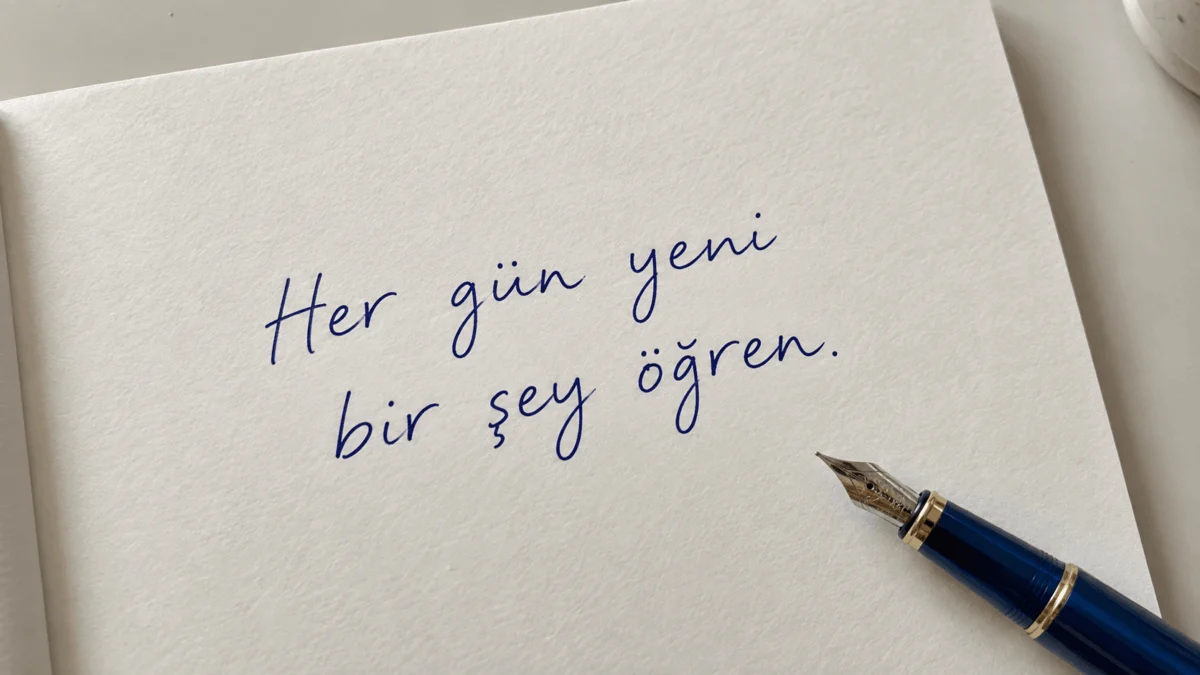 Her gün yeni
bir şey öğren.